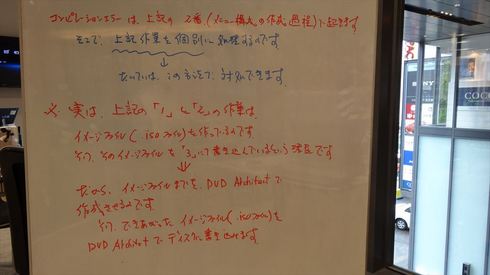 コンピレーションエラーは、上記の 2番(メニュー構成の作成過程)で起きます
そこで、上記作業を個別に処理するのです
↓
たいていは、この方法で、対処できます。
※ 実は、上記の「1」と「2」の作業は
イメージファイル(.isoファイル)を作っているのです
そのイメージファイルを「3」にて書き込んでいるという流れです
↓
だから、イメージファイルまでを、DVD Architectで
作成させるのです
できあがったイメージファイル(.isoファイル)を
DVD Architectで ディスクに書き込ませます。
COCO